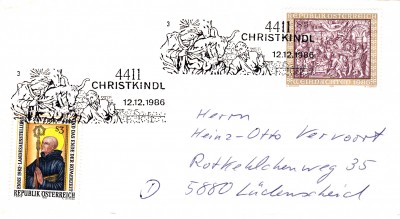 3
4411
CHRISTKINDL
12.12.1986
REPUBLIK ÖSTERREICH
3
4411
CHRISTKINDL
12.12.1986
S3
REPUBLIK ÖSTERREICH
Herrn
Heinz-Otto Vervoort
Rotkehlchenweg 35
D 5880 Lüdenscheid